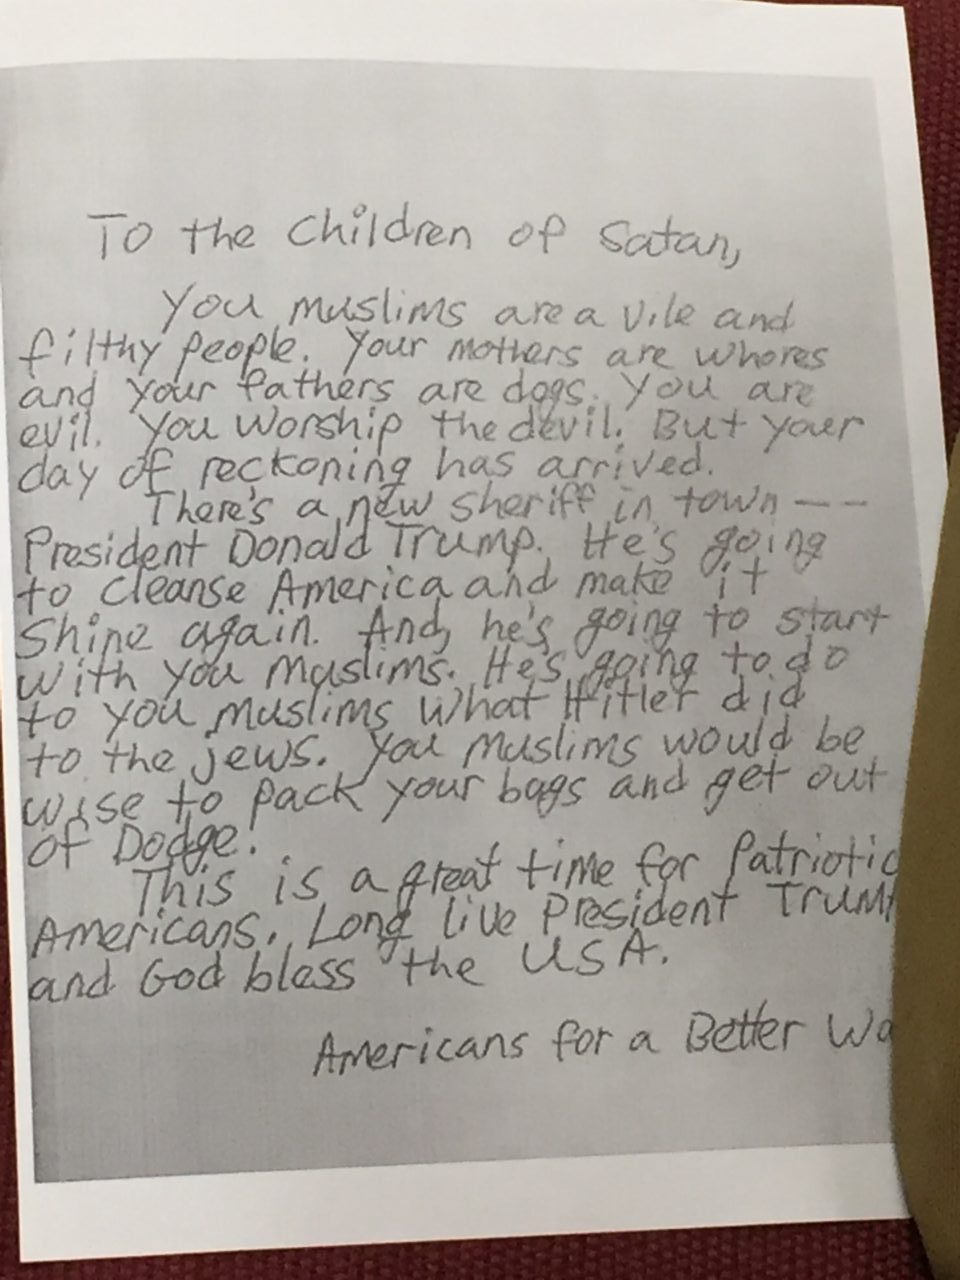 To the children of Satan,
You muslims are a vile and
filthy people. Your mothers are whores
and your fathers are dogs. You are
evil. You worship the devil. But your
day of reckoning has arrived.
There's a new sheriff in town --
President Donald Trump. He's going
to cleanse America and make it
shine again. And, he's going to start
with you muslims. He's going to do
to you muslims what Hitler did
to the jews. You muslims would be
wise to pack your bags and get out
of Dodge.
This is a great time for Patriotic
Americans. Long live President Trump
and God bless the USA.
Americans for a Better